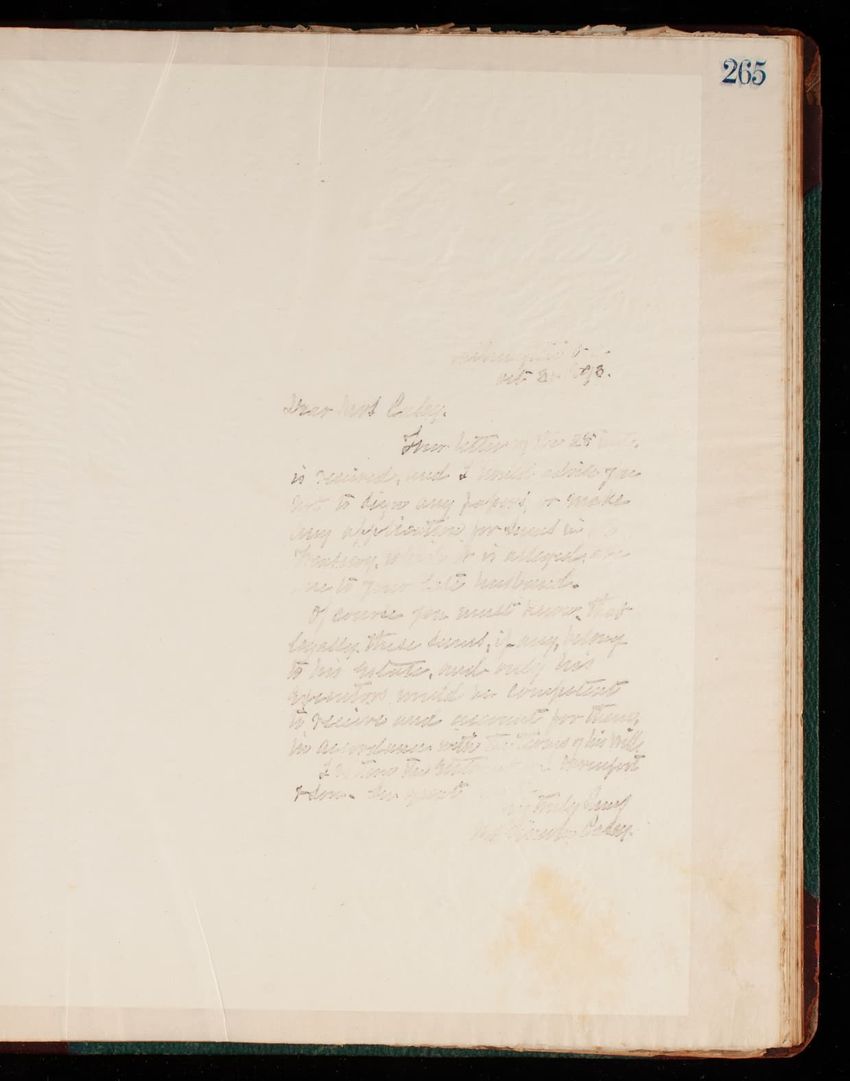 265
Oct 1893.
Dear Mrs Casey.
Your letter of the 28th
is received, and I would advise you
not to sign any papers, or make
any application for sums in
Treasury, which it is alleged, are
due to your late husband.
Of course you must know that
legally these sums, if any, belong
to his Estate, and only his
executors would be competent
to receive and account for them,
in accordance with the terms of his Will.
I return the letter Davenport
& Son.
truly yours
Mrs Casey.